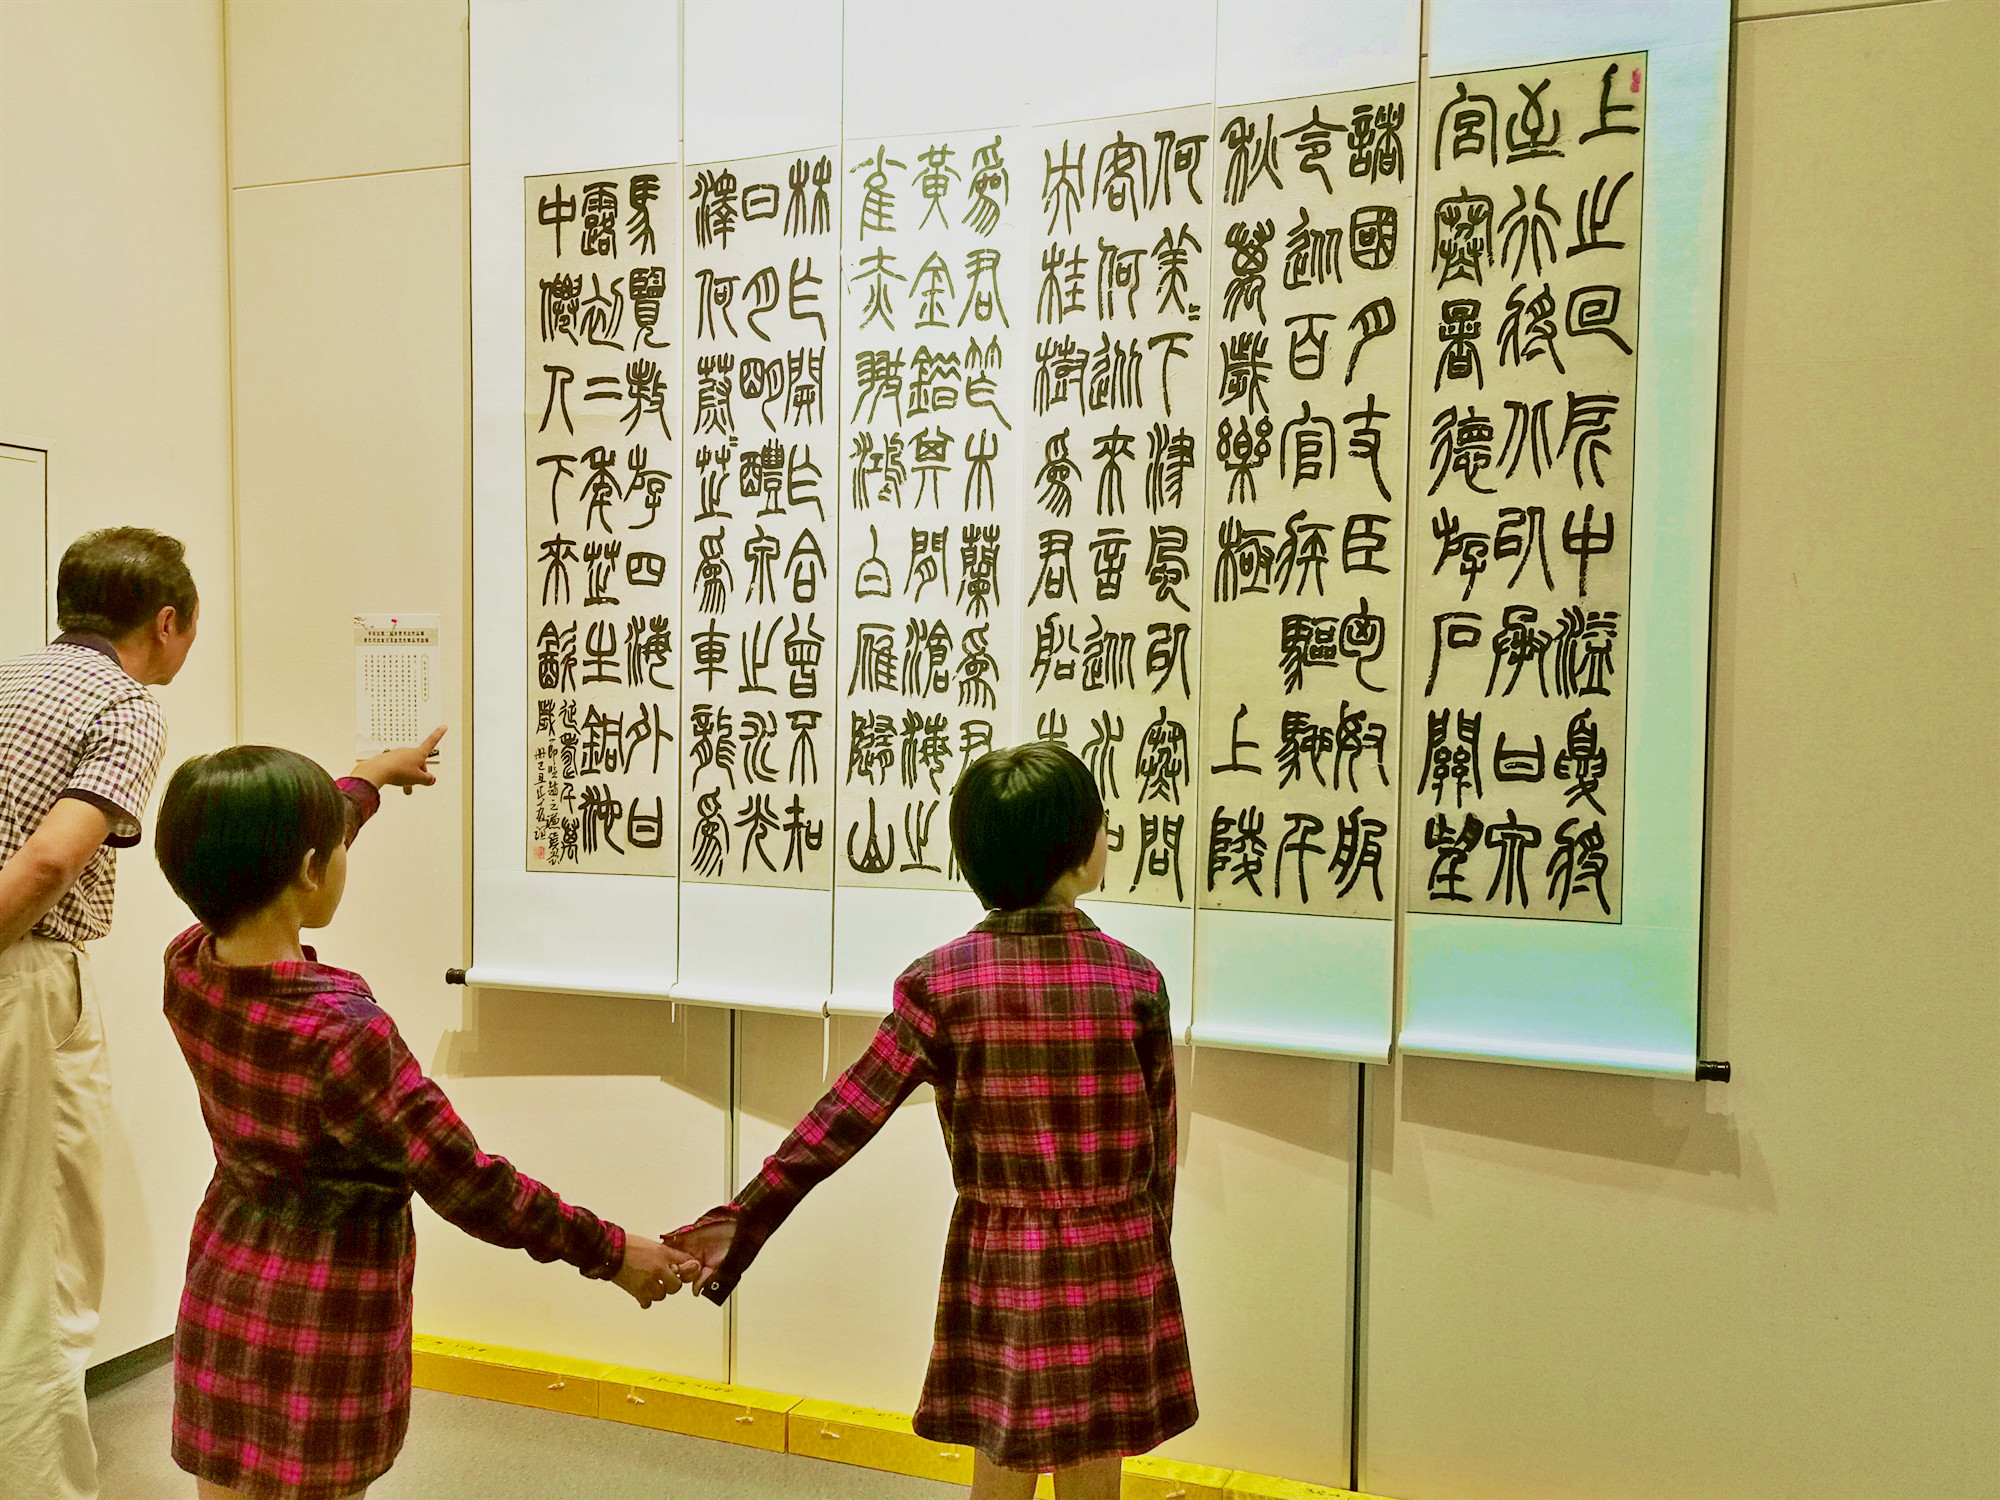 上之回所中溢夏將
至行將北以承甘泉
宮寒暑德游石關望
諸國月支臣匈奴服
令從百官疾驅馳千
秋萬歲樂極 上陵
何美〻下津風以寒問
客何從來言從水中
央桂樹爲君船青
爲君笮木蘭爲君
黃金錯其間滄海之
雀赤翅鴻白雁隨山
林乍開乍合曾不知
日月明醴泉之水光
澤何蔚〻芝爲車龍爲
馬覽敖游四海外甘
露初二年芝生銅池
中僊人下來飲
延壽千萬
歲